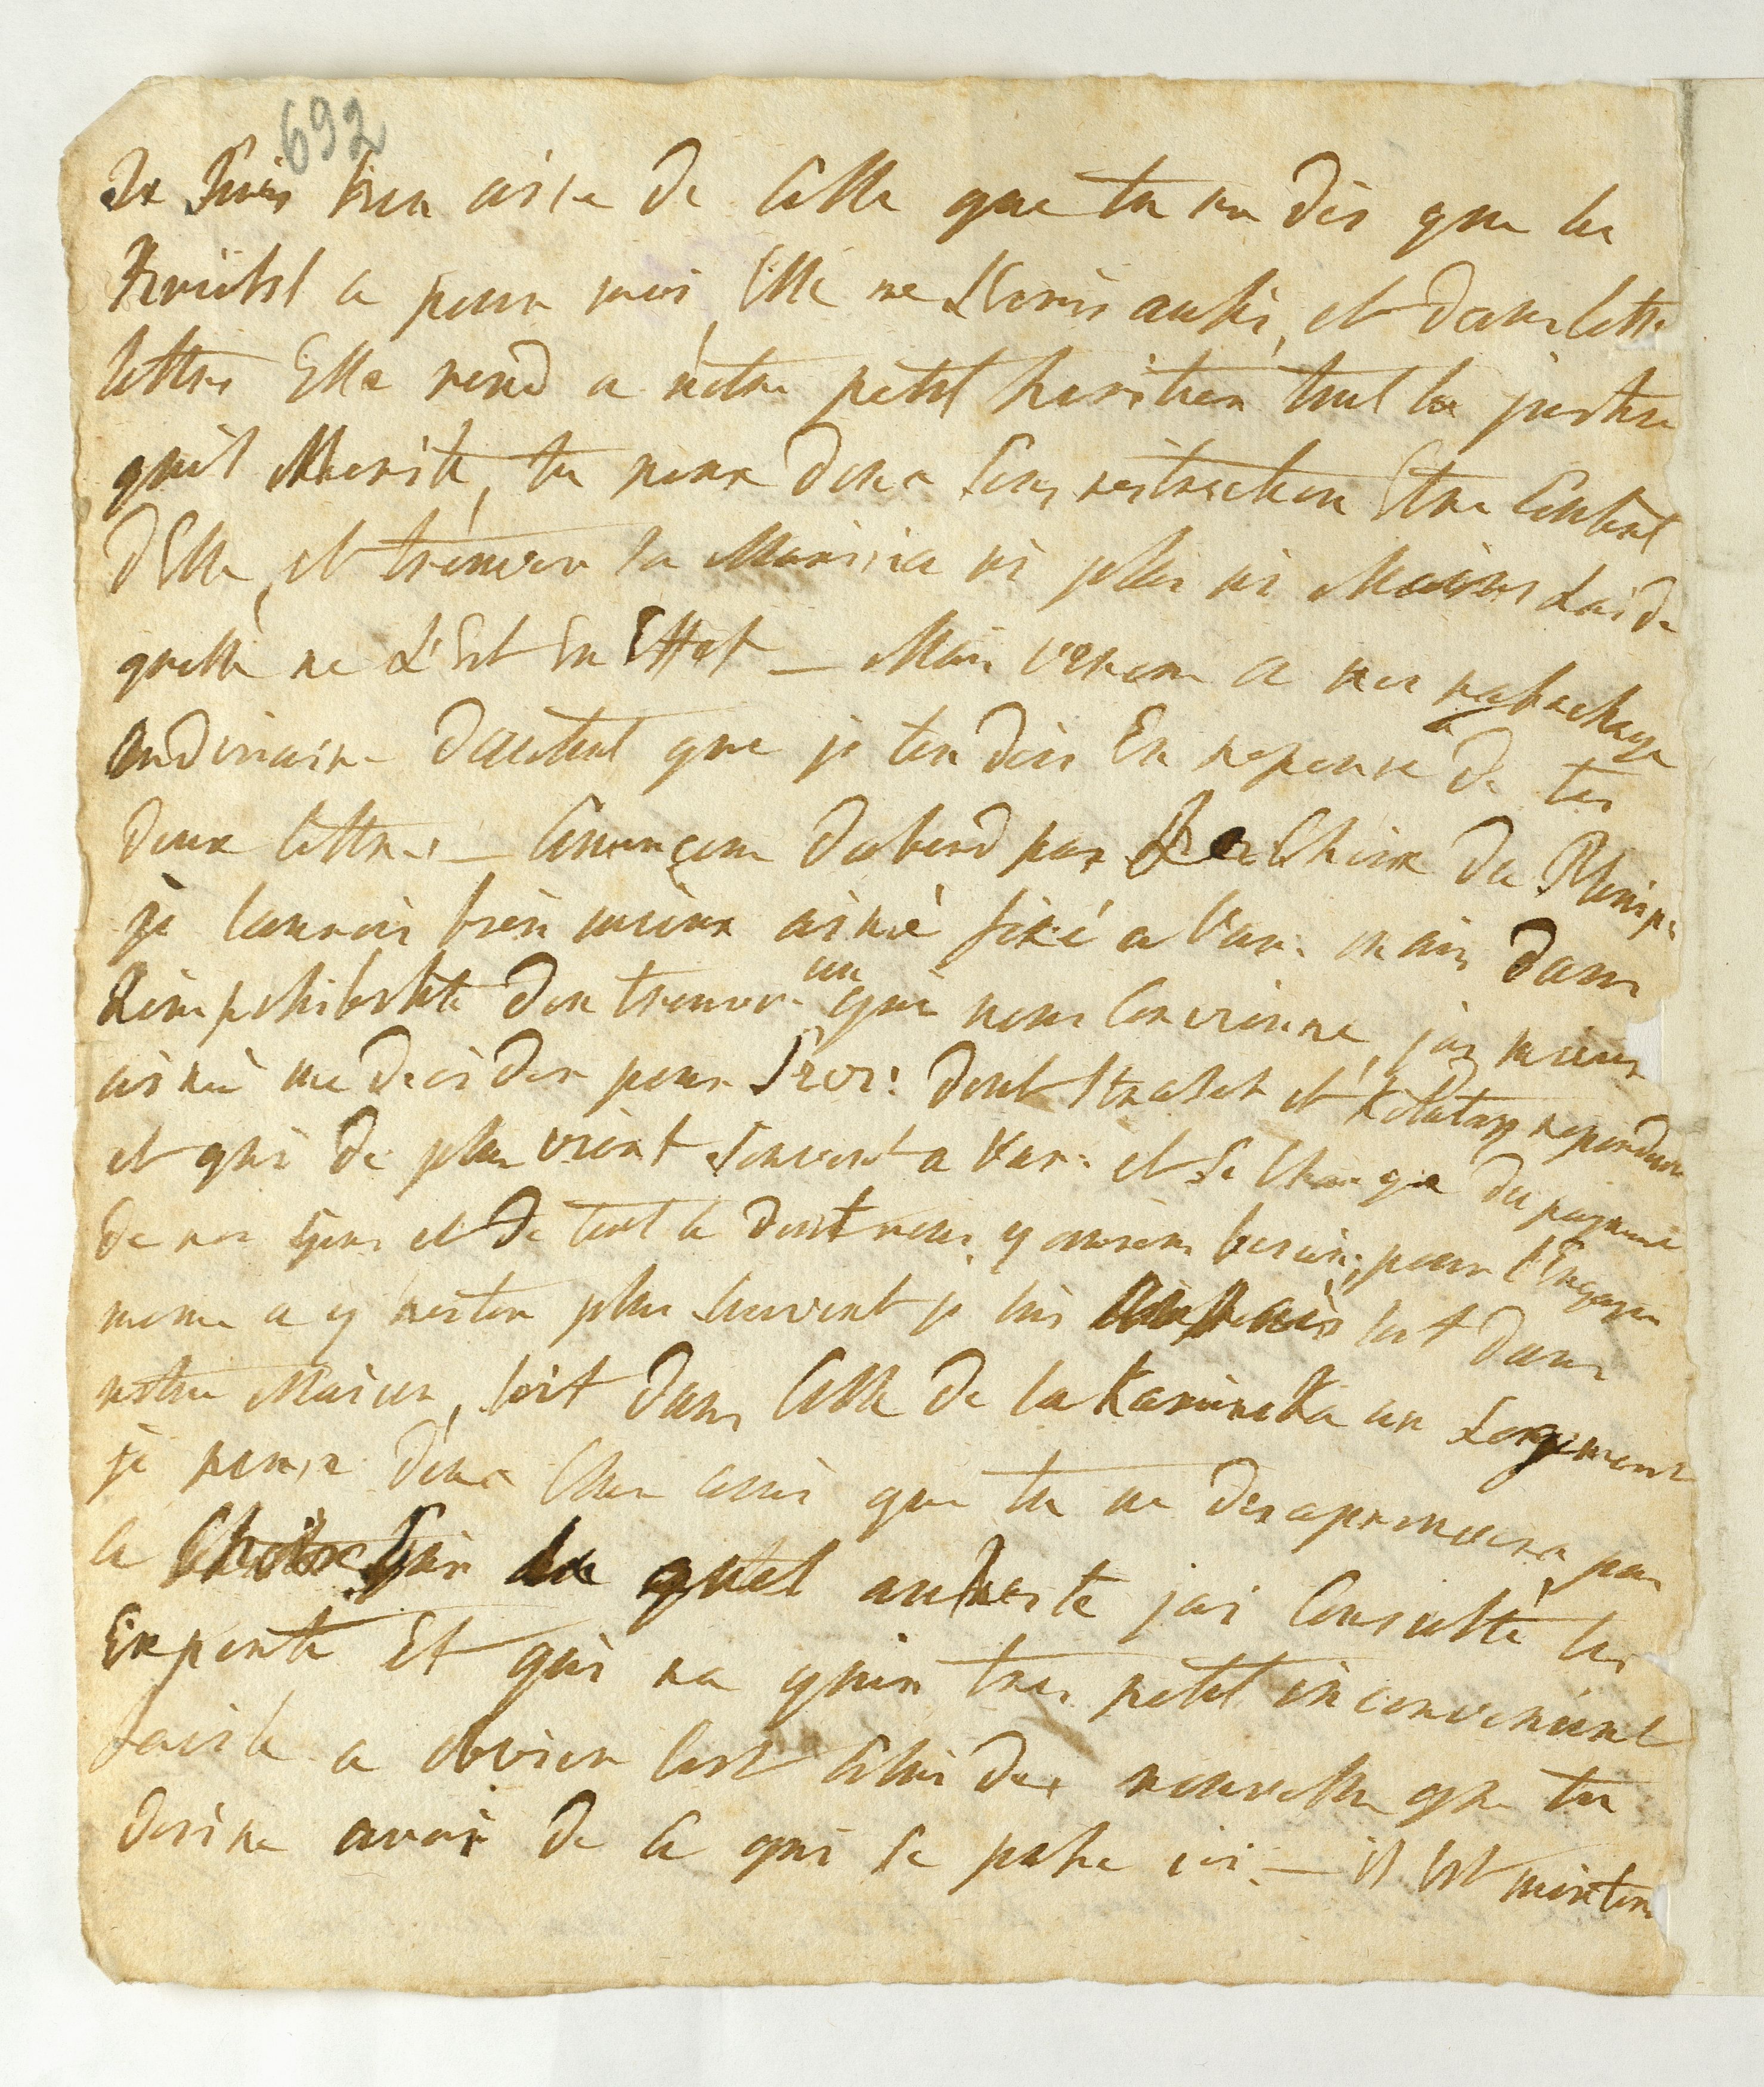 692
Je suis bien aise de celle que tu me dis que la
a pour moi, Elle me Ecrit aussi, et dans cette
lettre Elle rend a nôtre petit heritier tout la justice
quil Merite, tu peux donc sans restriction Etre Content
dElle, et trouver sa Marisia ni plus ni Moins Laide
quelle ne L'Est En Effet — Mais venons a nos rabachage
ordinaire dautant que je ten dois En reponse a de tes
deux lettres — Començons dabord par Le Choix du Plenip:
je laurois bien mieux aimé fixé a Vars: mais dans
Limpossibilité den trouver un qui nous Convienne, jai mieux
aimé me decider pour dont et repondent
et qui de plus vient souvent a Vars: et se Charge du payment
de nos gens et de tout ce dont nous y aurions besoin, pour l'Engager
meme a y rester plus souvent je lui soit dans
notre Maison, soit dans Celle de la Kamineka un Logement
je pense donc Cher ami que tu ne desaprouvera pas
ce Choix Sur le quel au reste jai Consulté les
Experts Et qui na quun tres petit inconvenient
facile a obvier cest Celui des nouvelles que tu
desire avoir de ce qui se passe ici — il Est